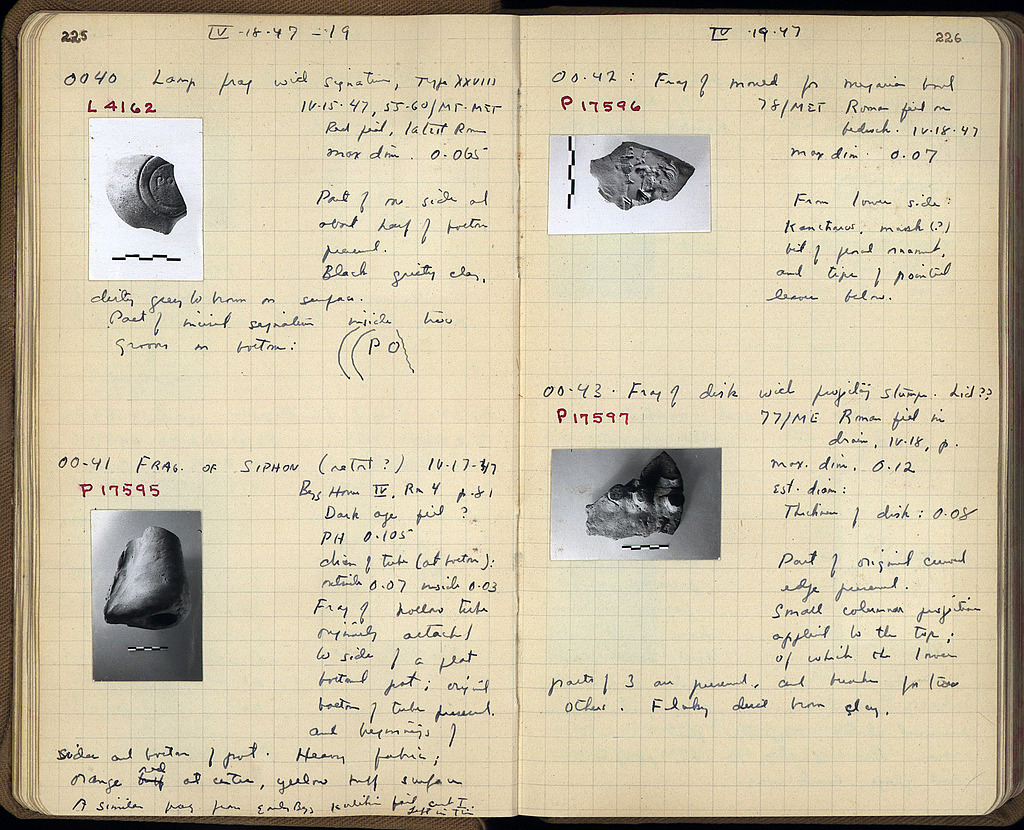 225
IV-18-47 - 19
0040 Lamp frag with signature, Type XXVIII
L 4162
IV-15-47, 55-60/MT-MET
Red fill, latest Rom
max dim. 0.065
Part of one side and
about half of bottom
present.
Black gritty clay,
dirty grey to brown on surface.
Part of incised signature inside two
grooves on bottom: PO
00-41 FRAG. OF SIPHON (retort?) IV-17-47
P 17595
Byz House IV, Rm 4 p. 81
Dark age fill ?
PH 0.105
diam of tube (at bottom):
outside 0.07 inside 0.03
Frag of hollow tube
originally attached
to side of a flat
bottomed pot; original
bottom of tube present.
and beginnings of
sides and bottom of pot. Heavy fabric;
orange red at center, yellow buff surface
A similar frag from Early Byz
IV-19-47
226
00-42: Frag of mould for megarian bowl
P 17596
78/MET Roman fill on
bedrock. IV-18-47
max dim. 0.07
From lower side:
Kantharos, mask (?)
bit of floral ornament,
and tips of pointed
leaves below.
00-43. Frag of disk with projecting stumps. Lid??
P 17597
77/ME Roman fill in
drain, IV-18, p.
max. dim. 0.12
Est. diam:
Thickness of disk: 0.08
Part of original curved
edge present.
Small columnar projections
applied to the top;
of which the lower
parts of 3 are present, and breaks for two
others. Flaky dark brown clay.